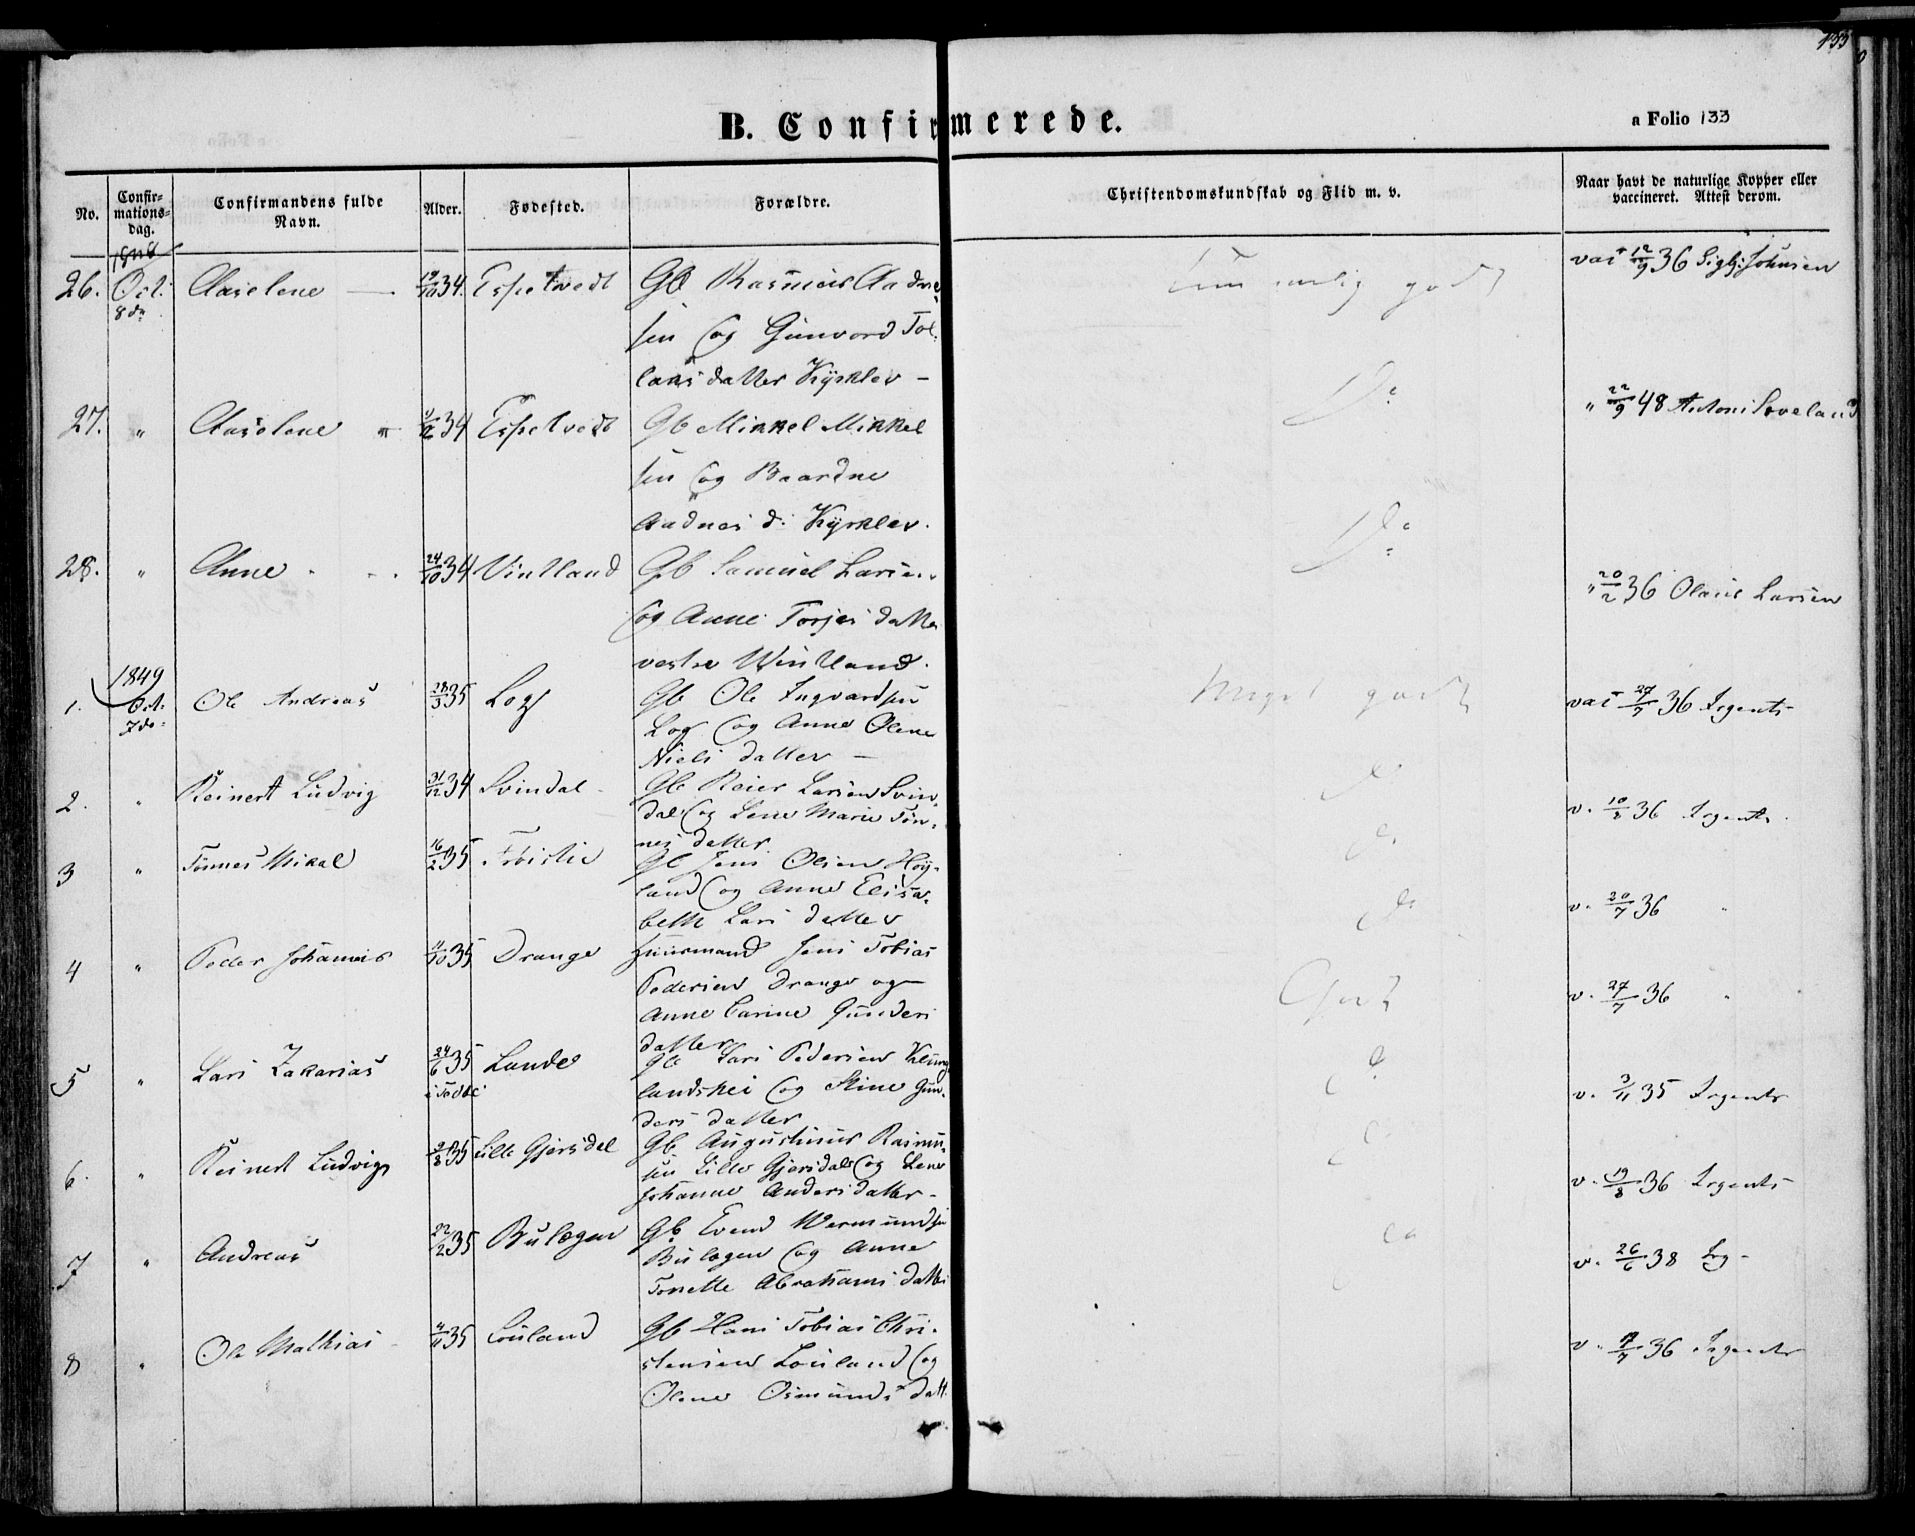 133
B. Confirmerede.
a Folio 133
No.
Confir-
mations-
dag.
Confirmandens fulde
Navn.
Alder.
Fødested.
Forældre.
Christendomskundskab og Flid m. v.
Naar havt de naturlige Kopper eller
vaccineret. Attest derom.
1848
26. Oct: Aaselene 34. Espetvedt Gb Rasmus Aadne
8de
sen og Gunvord Tol-
laksdatter Kyrklev –
godt
vac 12/9 36 Johnsen
27. " Aaselene 34 Espetvedt Gb Mikkel Mikkel
sen og Baardne
Aadnes d: Kyrklev.
Do
" 22/9 48 Antoni Loveland
28. " Anne 24/10 34 Vintland Gb Samuel Larsen
og Anne Torjesdatter
vestre Wintland.
Do
" 20/2 36 Olaus Larsen
1849
1. Oct. Ole Andreas 28/3 35 Log Gb Ole Ingvardsen
7de
Log og Anne Olene
Nielsdatter –
Meget godt
vac 27/7 36 Argents
2. " Reinert Ludvig 31/12 34 Svindal Gb Reier Larsen Svin-
dal og Lene Marie Tøn-
nesdatter
v. 10/8 36 Argents
3 " Tønnes Mikal 16/2 35 Gb Jens Olsen Høy-
land og Anne Elisa-
beth Larsdatter
do
v. 20/7 36 "
4 " Peder Johannes 11/10 35 Drange Huusmand Jens Tobias
Pedersen Drange og
Anne Carine Gunders
datter
Godt
v. 27/7 36 "
5 " Lars Zakarias 24/6 35 Lunde Gb Lars Pedersen Klung
landshei og Stine Gun-
dersdatter
v. 3/11 35 Argents
6. " Reinert Ludvig 35 Lille Gjersdal Gb Augustinus Rasmu-
sen Lille Gjersdal og Lene
Johanne Andersdatter –
v. 19/8 36 Argents
7 " Andreas 22/2 35 Bulægen Gb Evend Wermundsen
Bulægen og Anne
Tonette Abrahamsdatter
v. 26/6 38 Log –
8 " Ole Mathias 35 Louland Gb Hans Tobias Chri-
stensen Louland og
Olene Osmundsdatt.
36 Argents